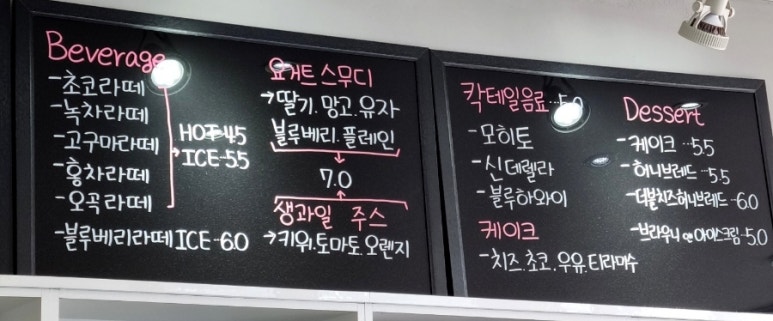 Beverage
-초코라떼
-녹차라떼
-고구마라떼
-홍차라떼
-오곡라떼
HOT 4.5
→ICE-5.5
-블루베리라떼 ICE-6.0
요거트 스무디
→딸기.망고.유자
블루베리.플레인
7.0
생과일 주스
→키위.토마토.오렌지
칵테일음료...5.0
-모히토
-신데렐라
-블루하와이
케이크
-치즈.초코.우유.티라미수
Dessert
-케이크--5.5
-허니브레드--5.5
-더블치즈허니브레드-6.0
-브라우니 on 아이스크림-5.0